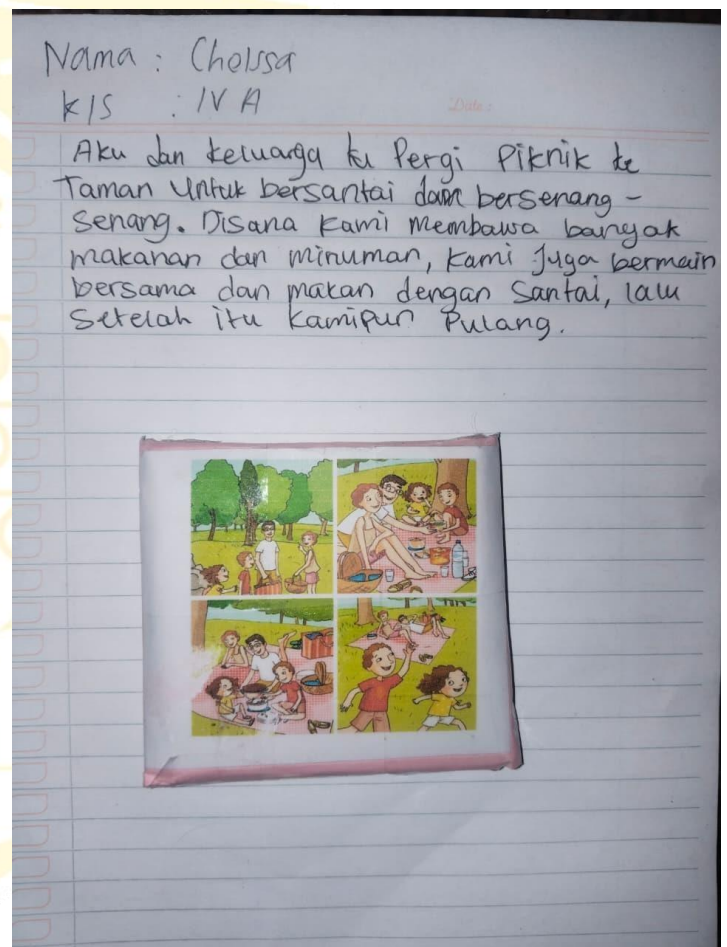 Nama : Chelssa
Kls : IV A
Date :
Aku dan keluarga ku Pergi Piknik ke
Taman Untuk bersantai dan bersenang -
Senang. Disana Kami Membawa banyak
makanan dan minuman, Kami Juga bermain
bersama dan makan dengan Santai, lalu
Setelah itu Kamipun Pulang.